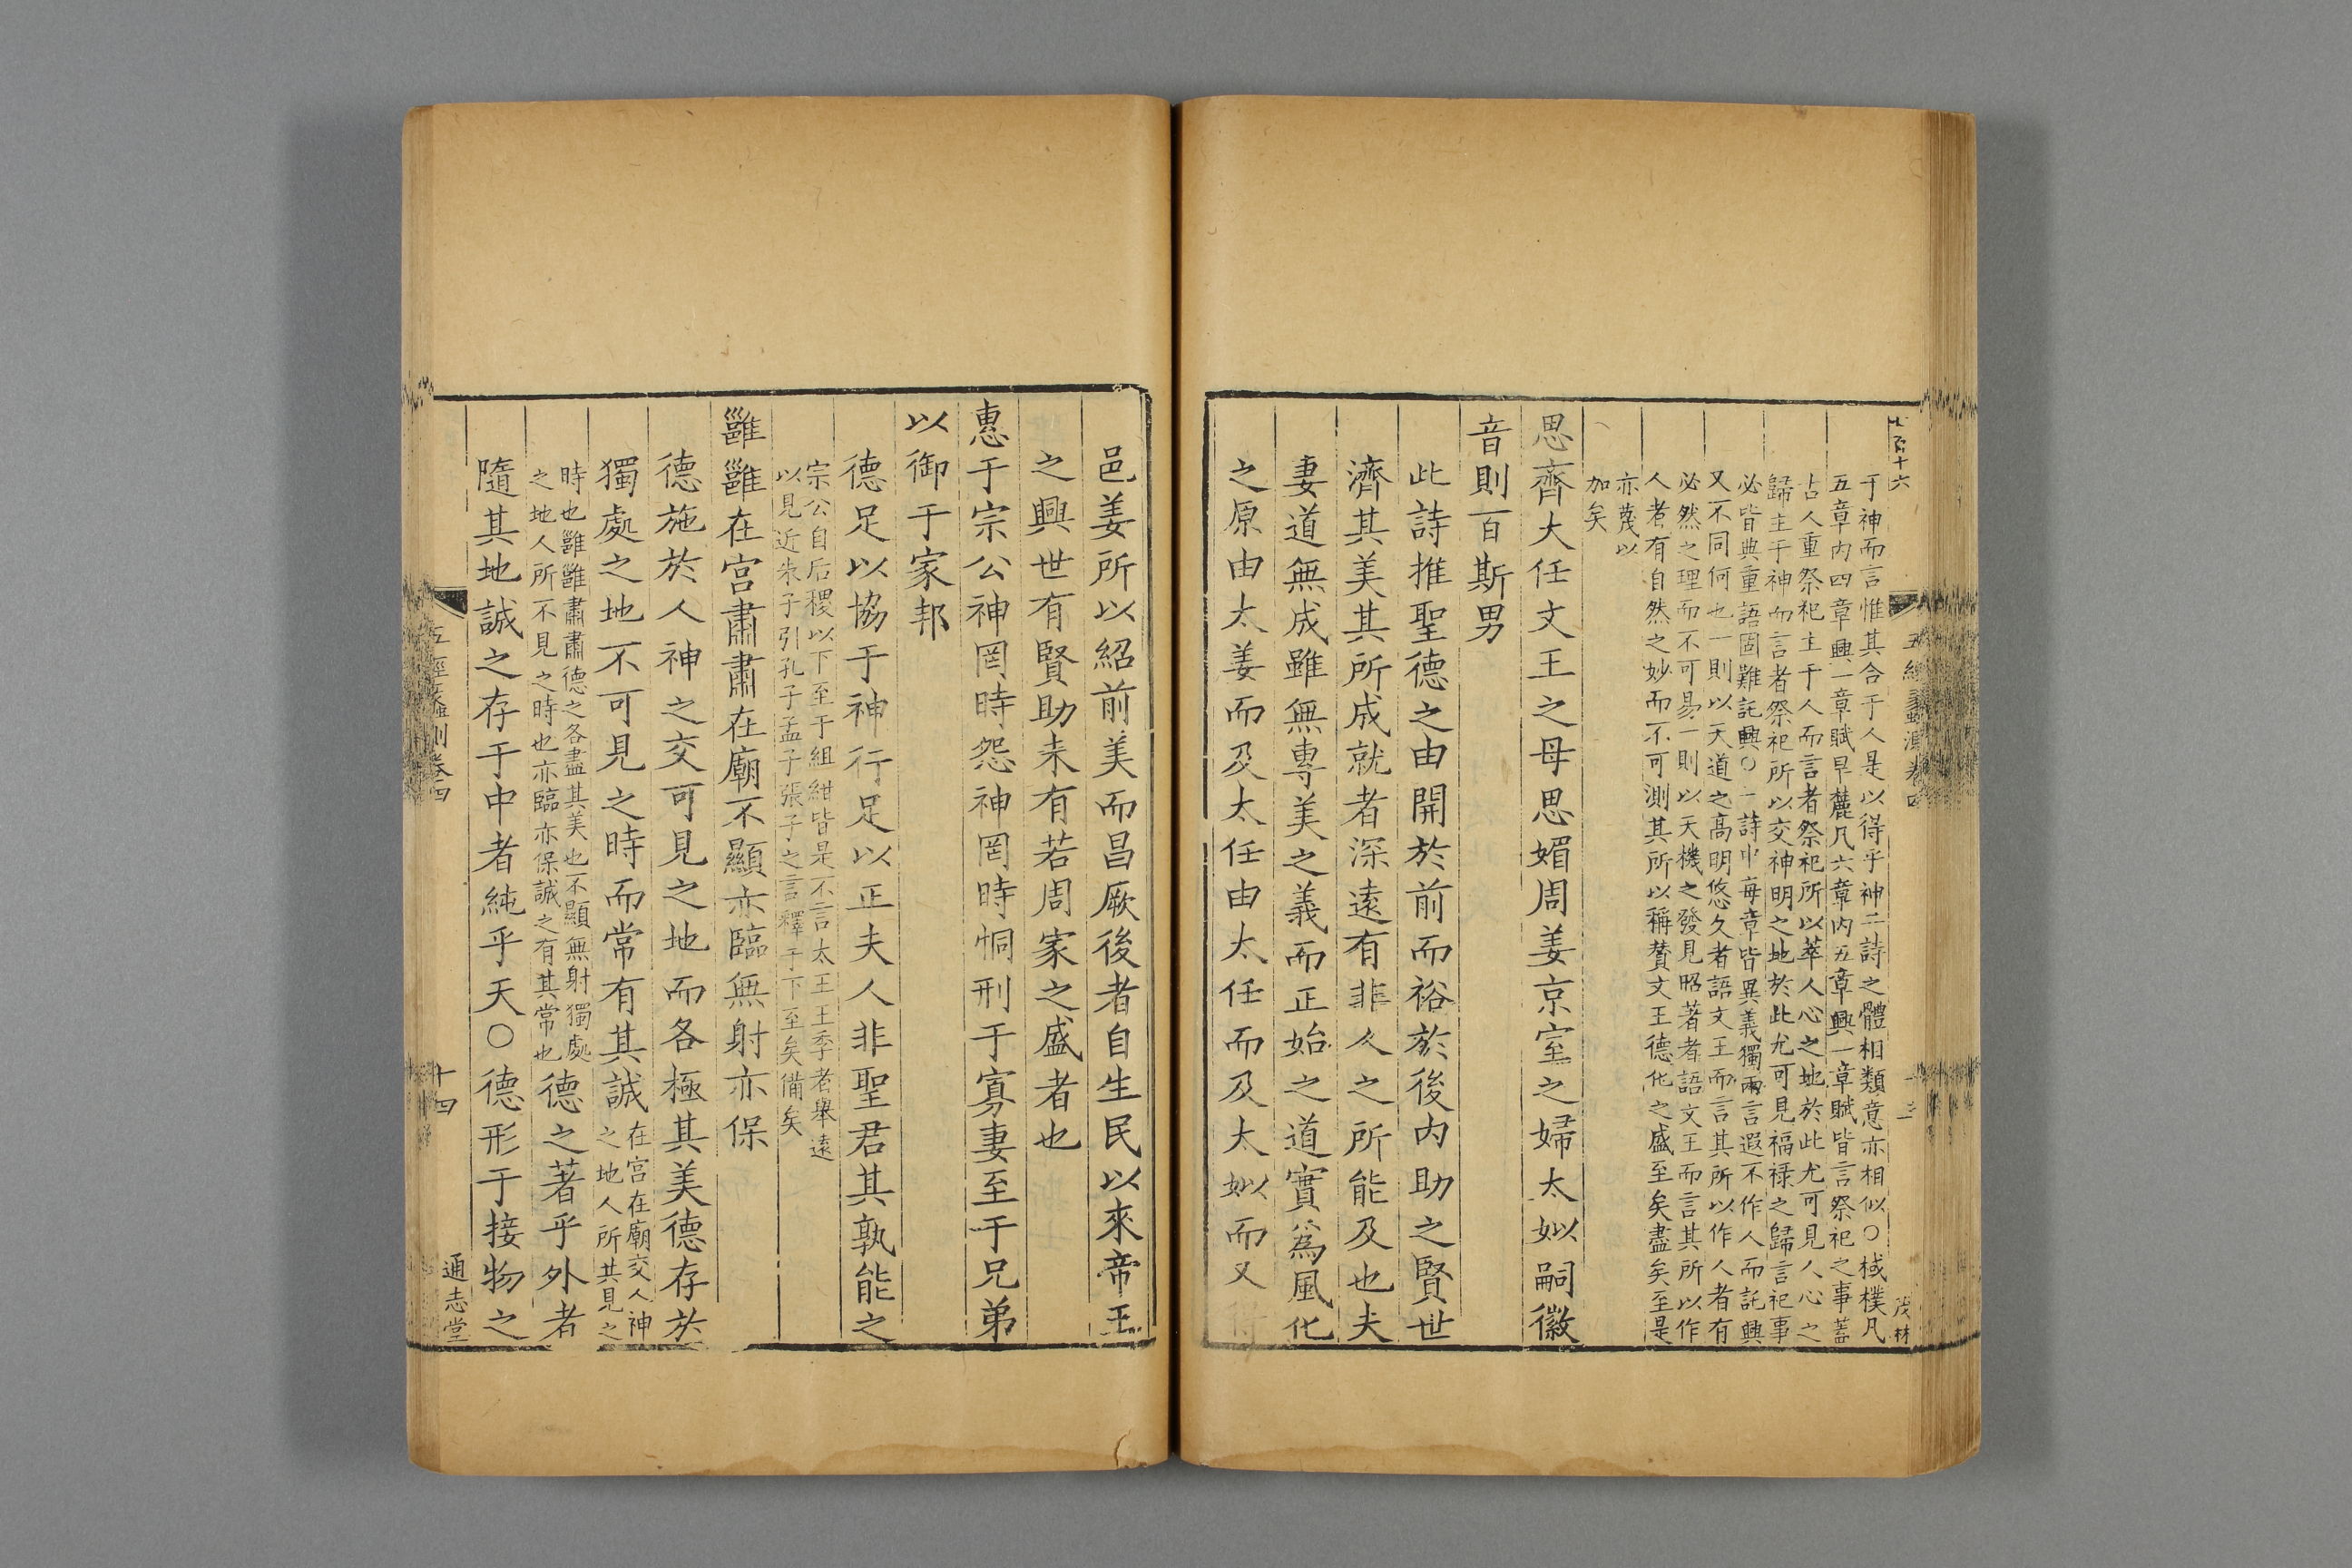 于神而言惟其合于人是以得乎神二詩之體相類意亦相似○棫樸凡
五章内四章興一章賦旱麓凡六章内五章興一章賦皆言祭祀之事蓋
占人重祭祀主于人而言者祭祀所以萃人心之地於此尤可見人心之
歸主于神而言者祭祀所以交神明之地於此尤可見福祿之歸言祀事
必皆典重語固難託興○一詩中每章皆異義獨兩言遐不作人而託興
又不同何也一則以天道之高明悠久者語文王而言其所以作人者有
必然之理而不可易一則以天機之發見昭著者語文王而言其所以作
人者有自然之妙而不可測其所以稱賛文王德化之盛至矣盡矣至是
亦蔑以
加矣
思齊大任文王之母思媚周姜京室之婦太姒嗣徽
音則百斯男
此詩推聖德之由開於前而裕於後内助之賢世
濟其美其所成就者深遠有非人之所能及也夫
妻道無成雖無專美之義而正始之道實爲風化
之原由太姜而及太任由太任而及太姒而又
茂林
邑姜所以紹前美而昌厥後者自生民以來帝王
之興世有賢助未有若周家之盛者也
惠于宗公神罔時怨神罔時恫刑于寡妻至于兄弟
以御于家邦
德足以協于神行足以正夫人非聖君其孰能之
宗公自后稷以下至于組紺皆是不言太王王季者舉遠
以見近朱子引孔子孟子張子之言釋于下至矣備矣
雝雝在宫肅肅在廟不顯亦臨無射亦保
德施於人神之交可見之地而各極其美德存於
獨處之地不可見之時而常有其誠在宫在廟交人神
之地人所共見之
時也雝雝肅肅德之各盡其美也不顯無射獨處
之地人所不見之時也亦臨亦保誠之有其常也德之著乎外者
隨其地誠之存于中者純乎天○德形于接物之
五經蠡測卷四
十四
通志堂